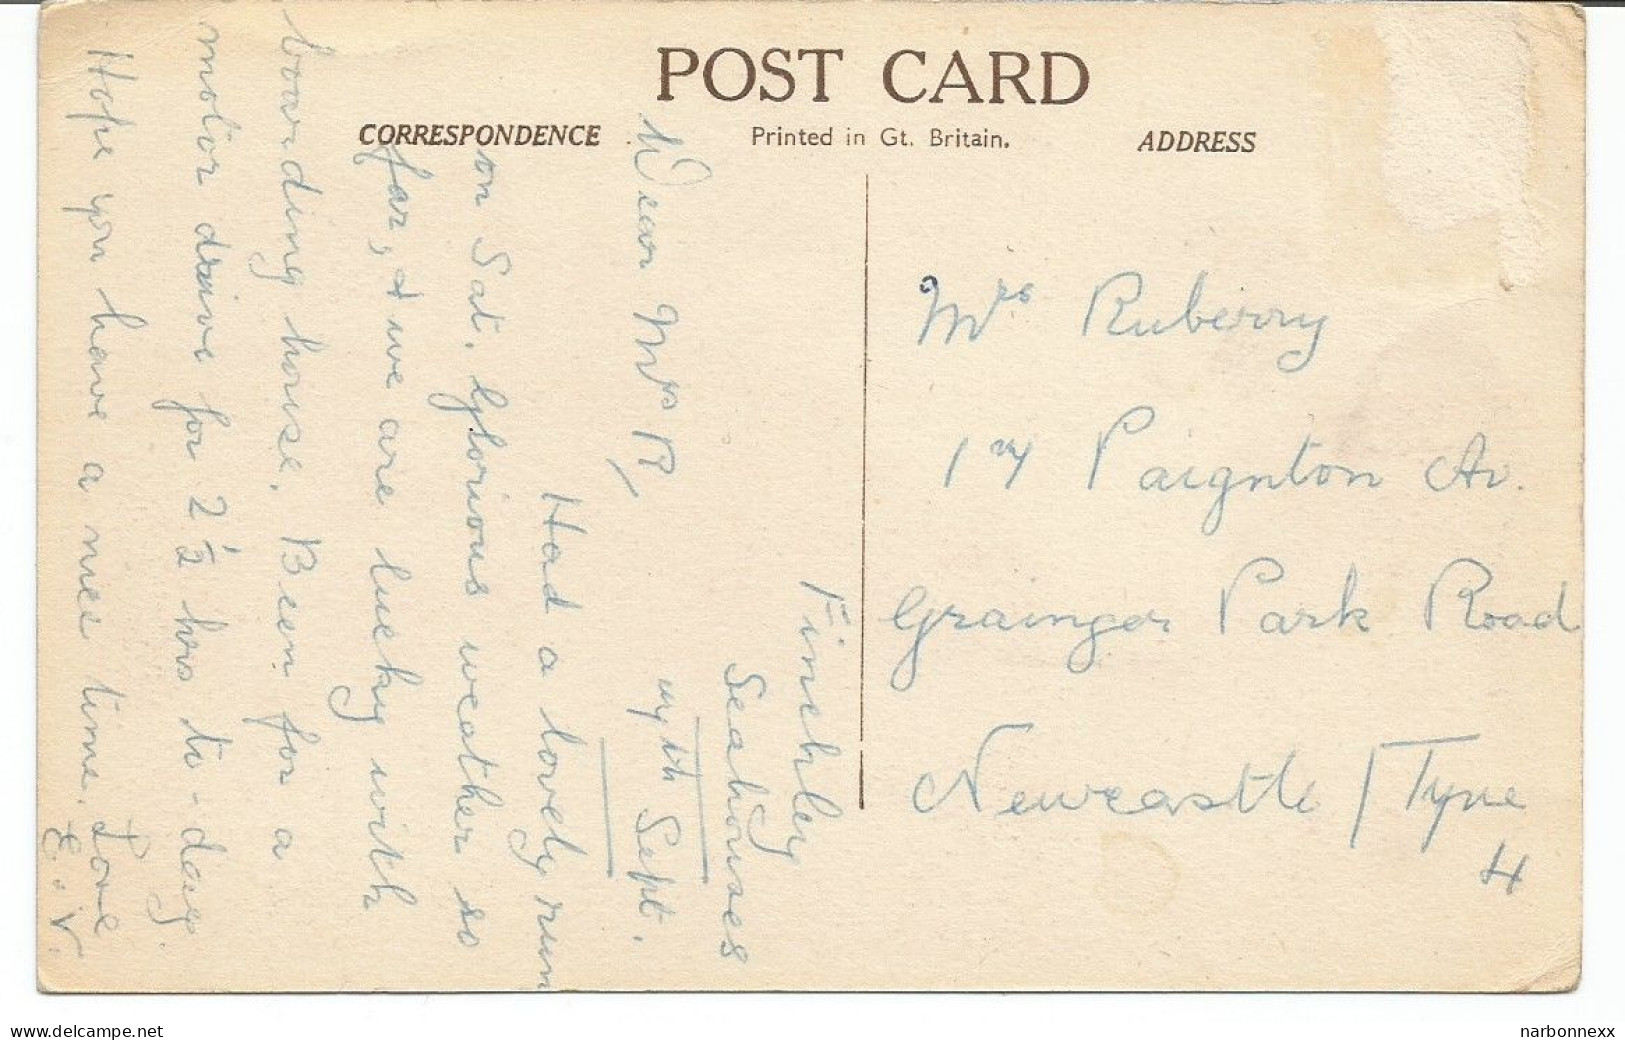 POST CARD
CORRESPONDENCE
Printed in Gt. Britain.
ADDRESS
Finchley
Seahouses
Sept.
Dear Mrs R,
Had a lovely run
on Sat. Glorious weather so
far, & we are lucky with
boarding house. Been for a
motor drive for 2½ hrs to-day.
Hope you have a nice time. Love
E.V.
Mrs Ruberry
Paignton Av.
Grainger Park Road
Newcastle / Tyne
4
www.delcampe.net
narbonnexx